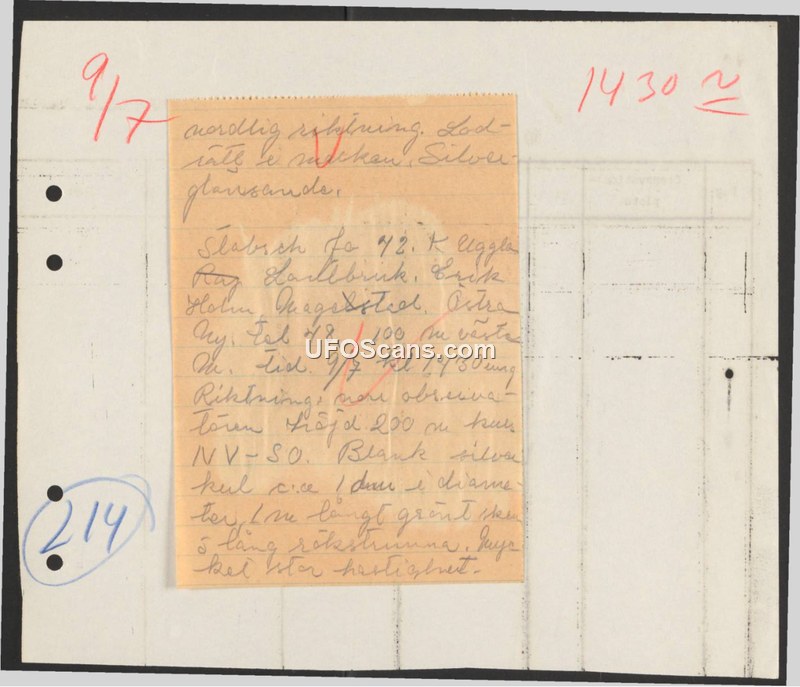 9/7
1430 N
nordlig riktning. Lod-
rätt i marken. Silver-
glänsande.
Stabsch Fo 42. K Uggla
Lantbruk. Erik
Holm, Östra
Ny. tel 48 100 m västra
tid. 9/7 kl 1430 ung
Riktning, mot observa-
tören Höjd 200 m kurs
NV-SO. Blank silver
kul c:a 1 dm i diame-
ter, 1 m långt grönt sken
lång Myc-
ket stor hastighet.
214
UFOScans.com